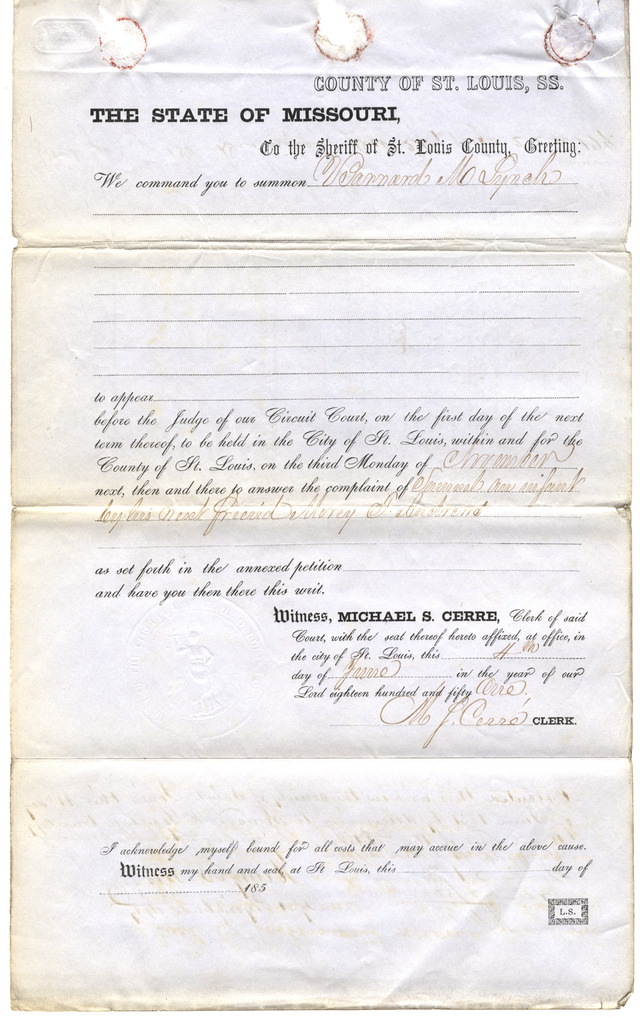 COUNTY OF ST. LOUIS, SS.
THE STATE OF MISSOURI,
To the Sheriff of St. Louis County, Greeting:
We command you to summon Barnard M Lynch
to appear
before the Judge of our Circuit Court, on the first day of the next
term thereof, to be held in the City of St. Louis, within and for the
County of St. Louis, on the third Monday of November
next, then and there to answer the complaint of Samuel an infant
by his next friend
as set forth in the annexed petition
and have you then there this writ.
Witness, MICHAEL S. CERRE, Clerk of said
Court, with the seal thereof hereto affixed, at office, in
the city of St. Louis, this 4th
day of June in the year of our
Lord eighteen hundred and fifty One.
M S. Cerré CLERK.
I acknowledge myself bound for all costs that may accrue in the above cause.
Witness my hand and seal, at St Louis, this day of
185
L.S.